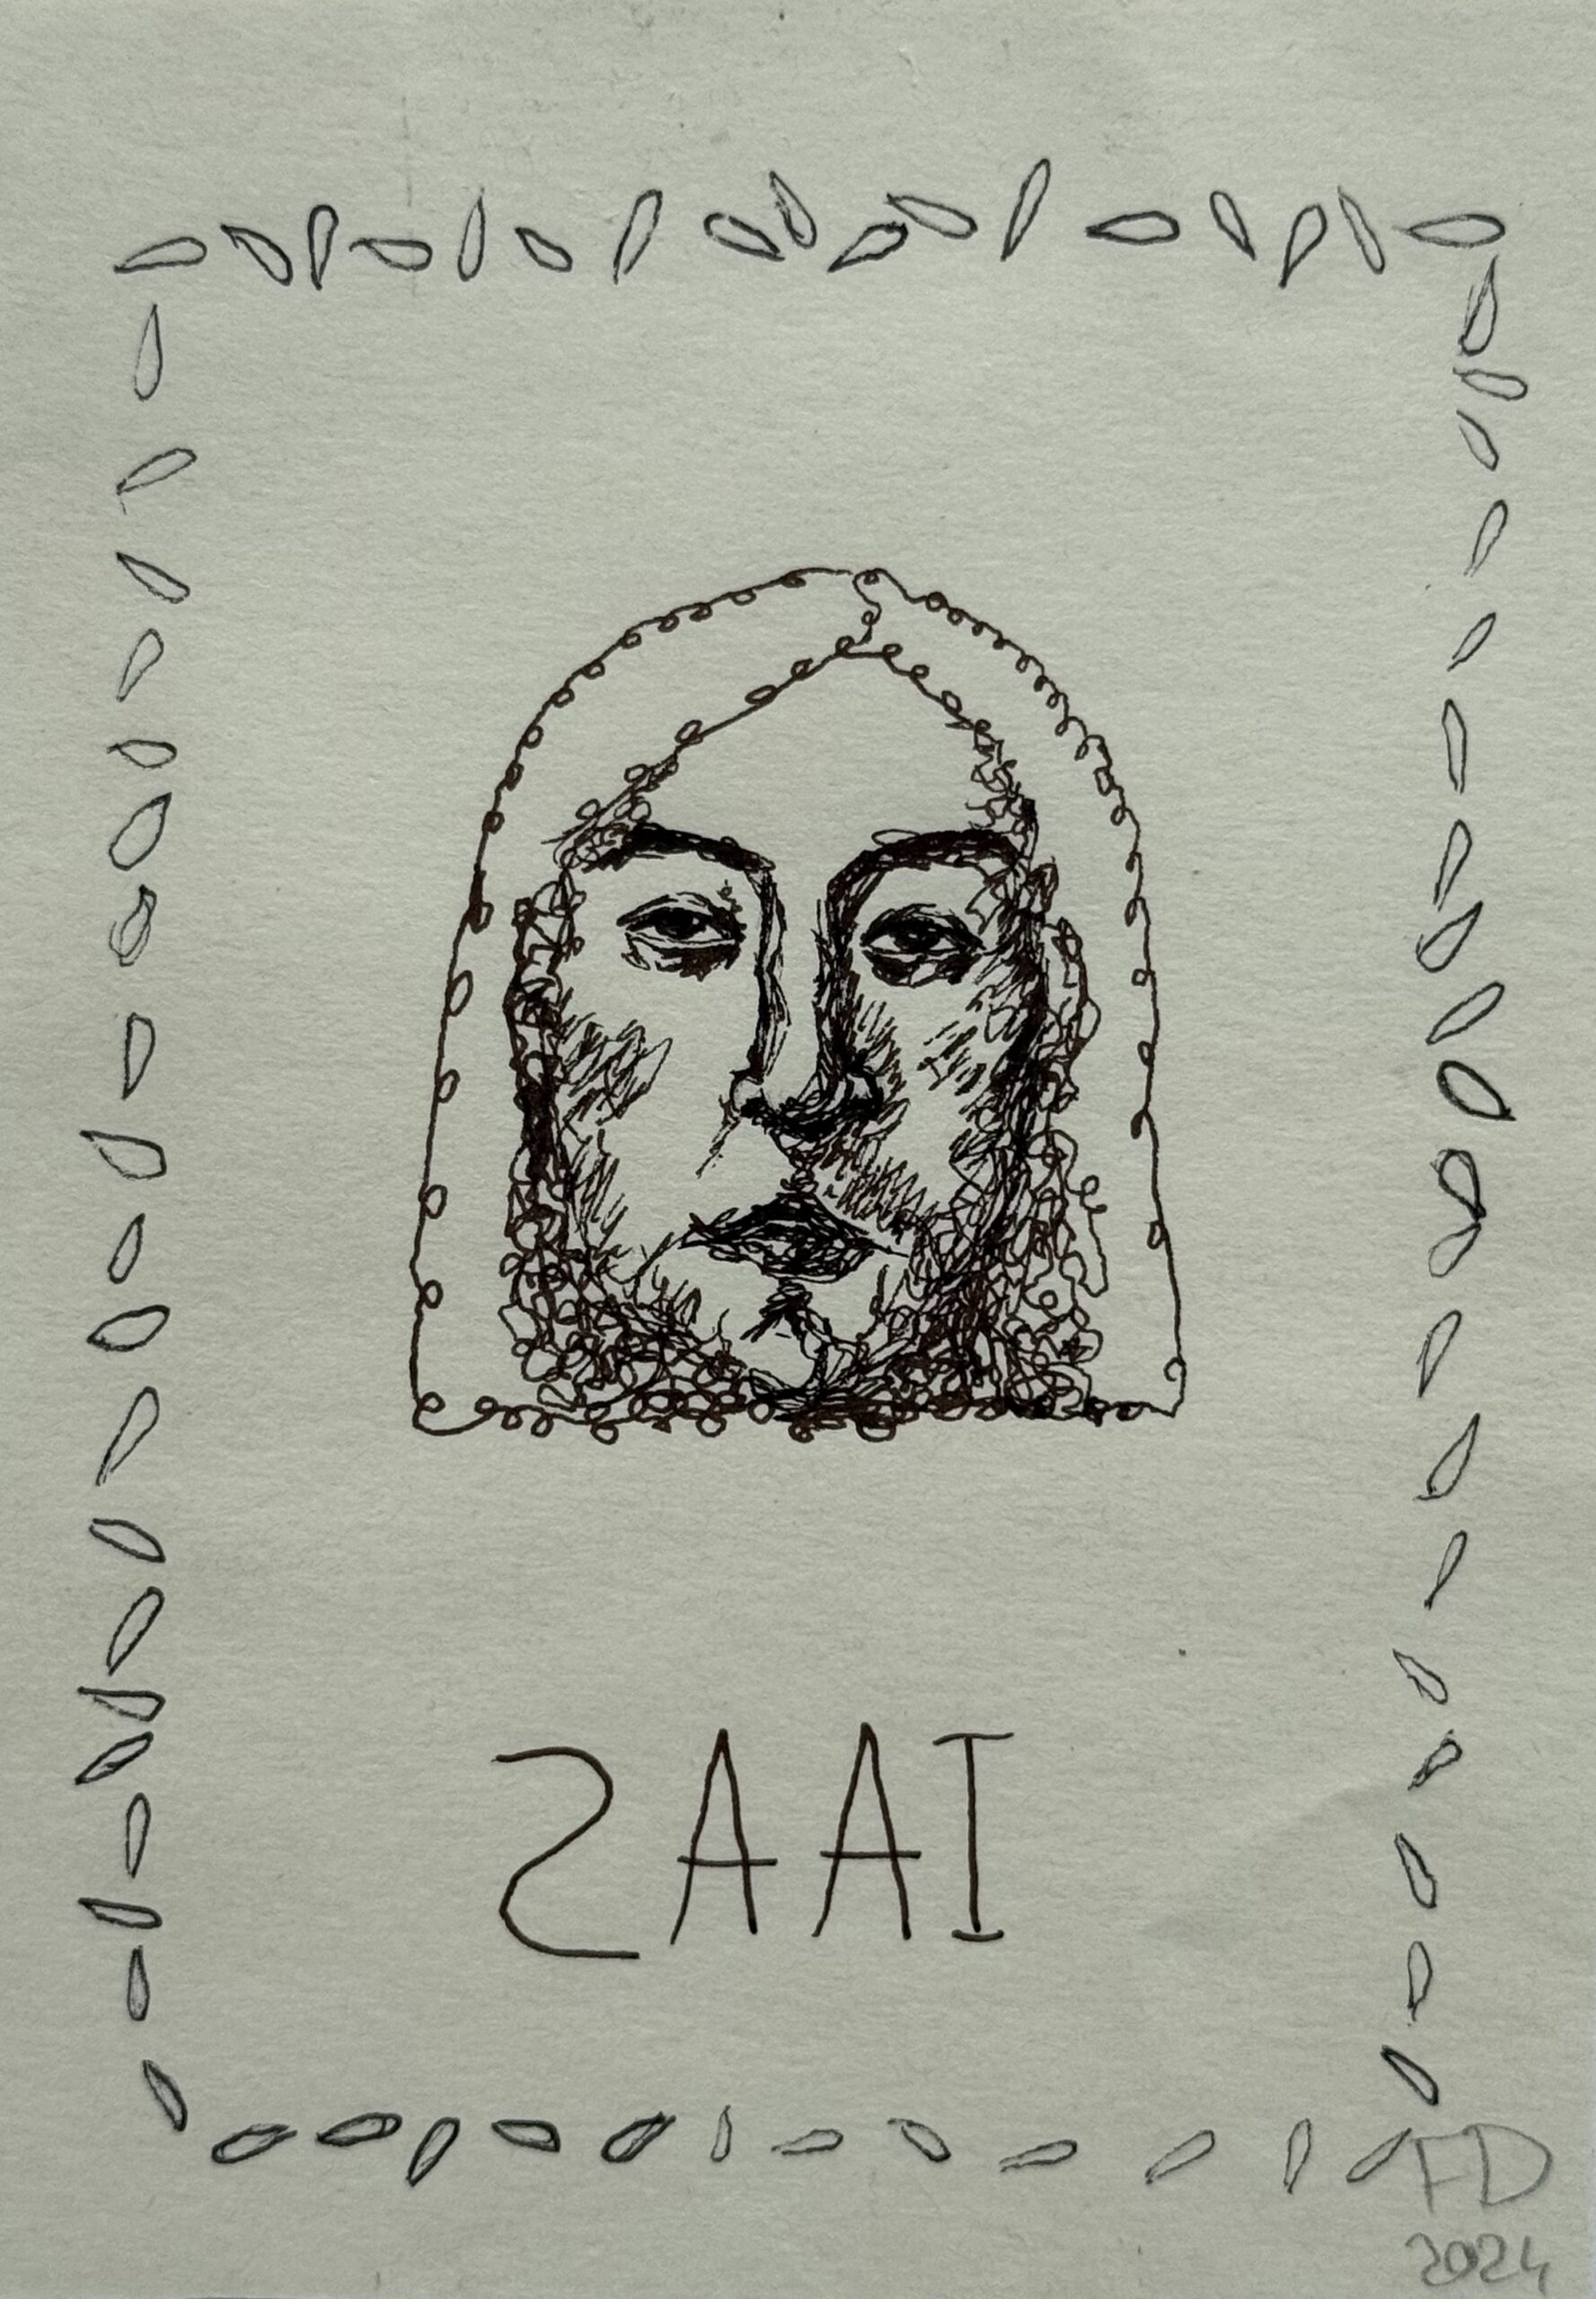 ƧAAI
FD
2024